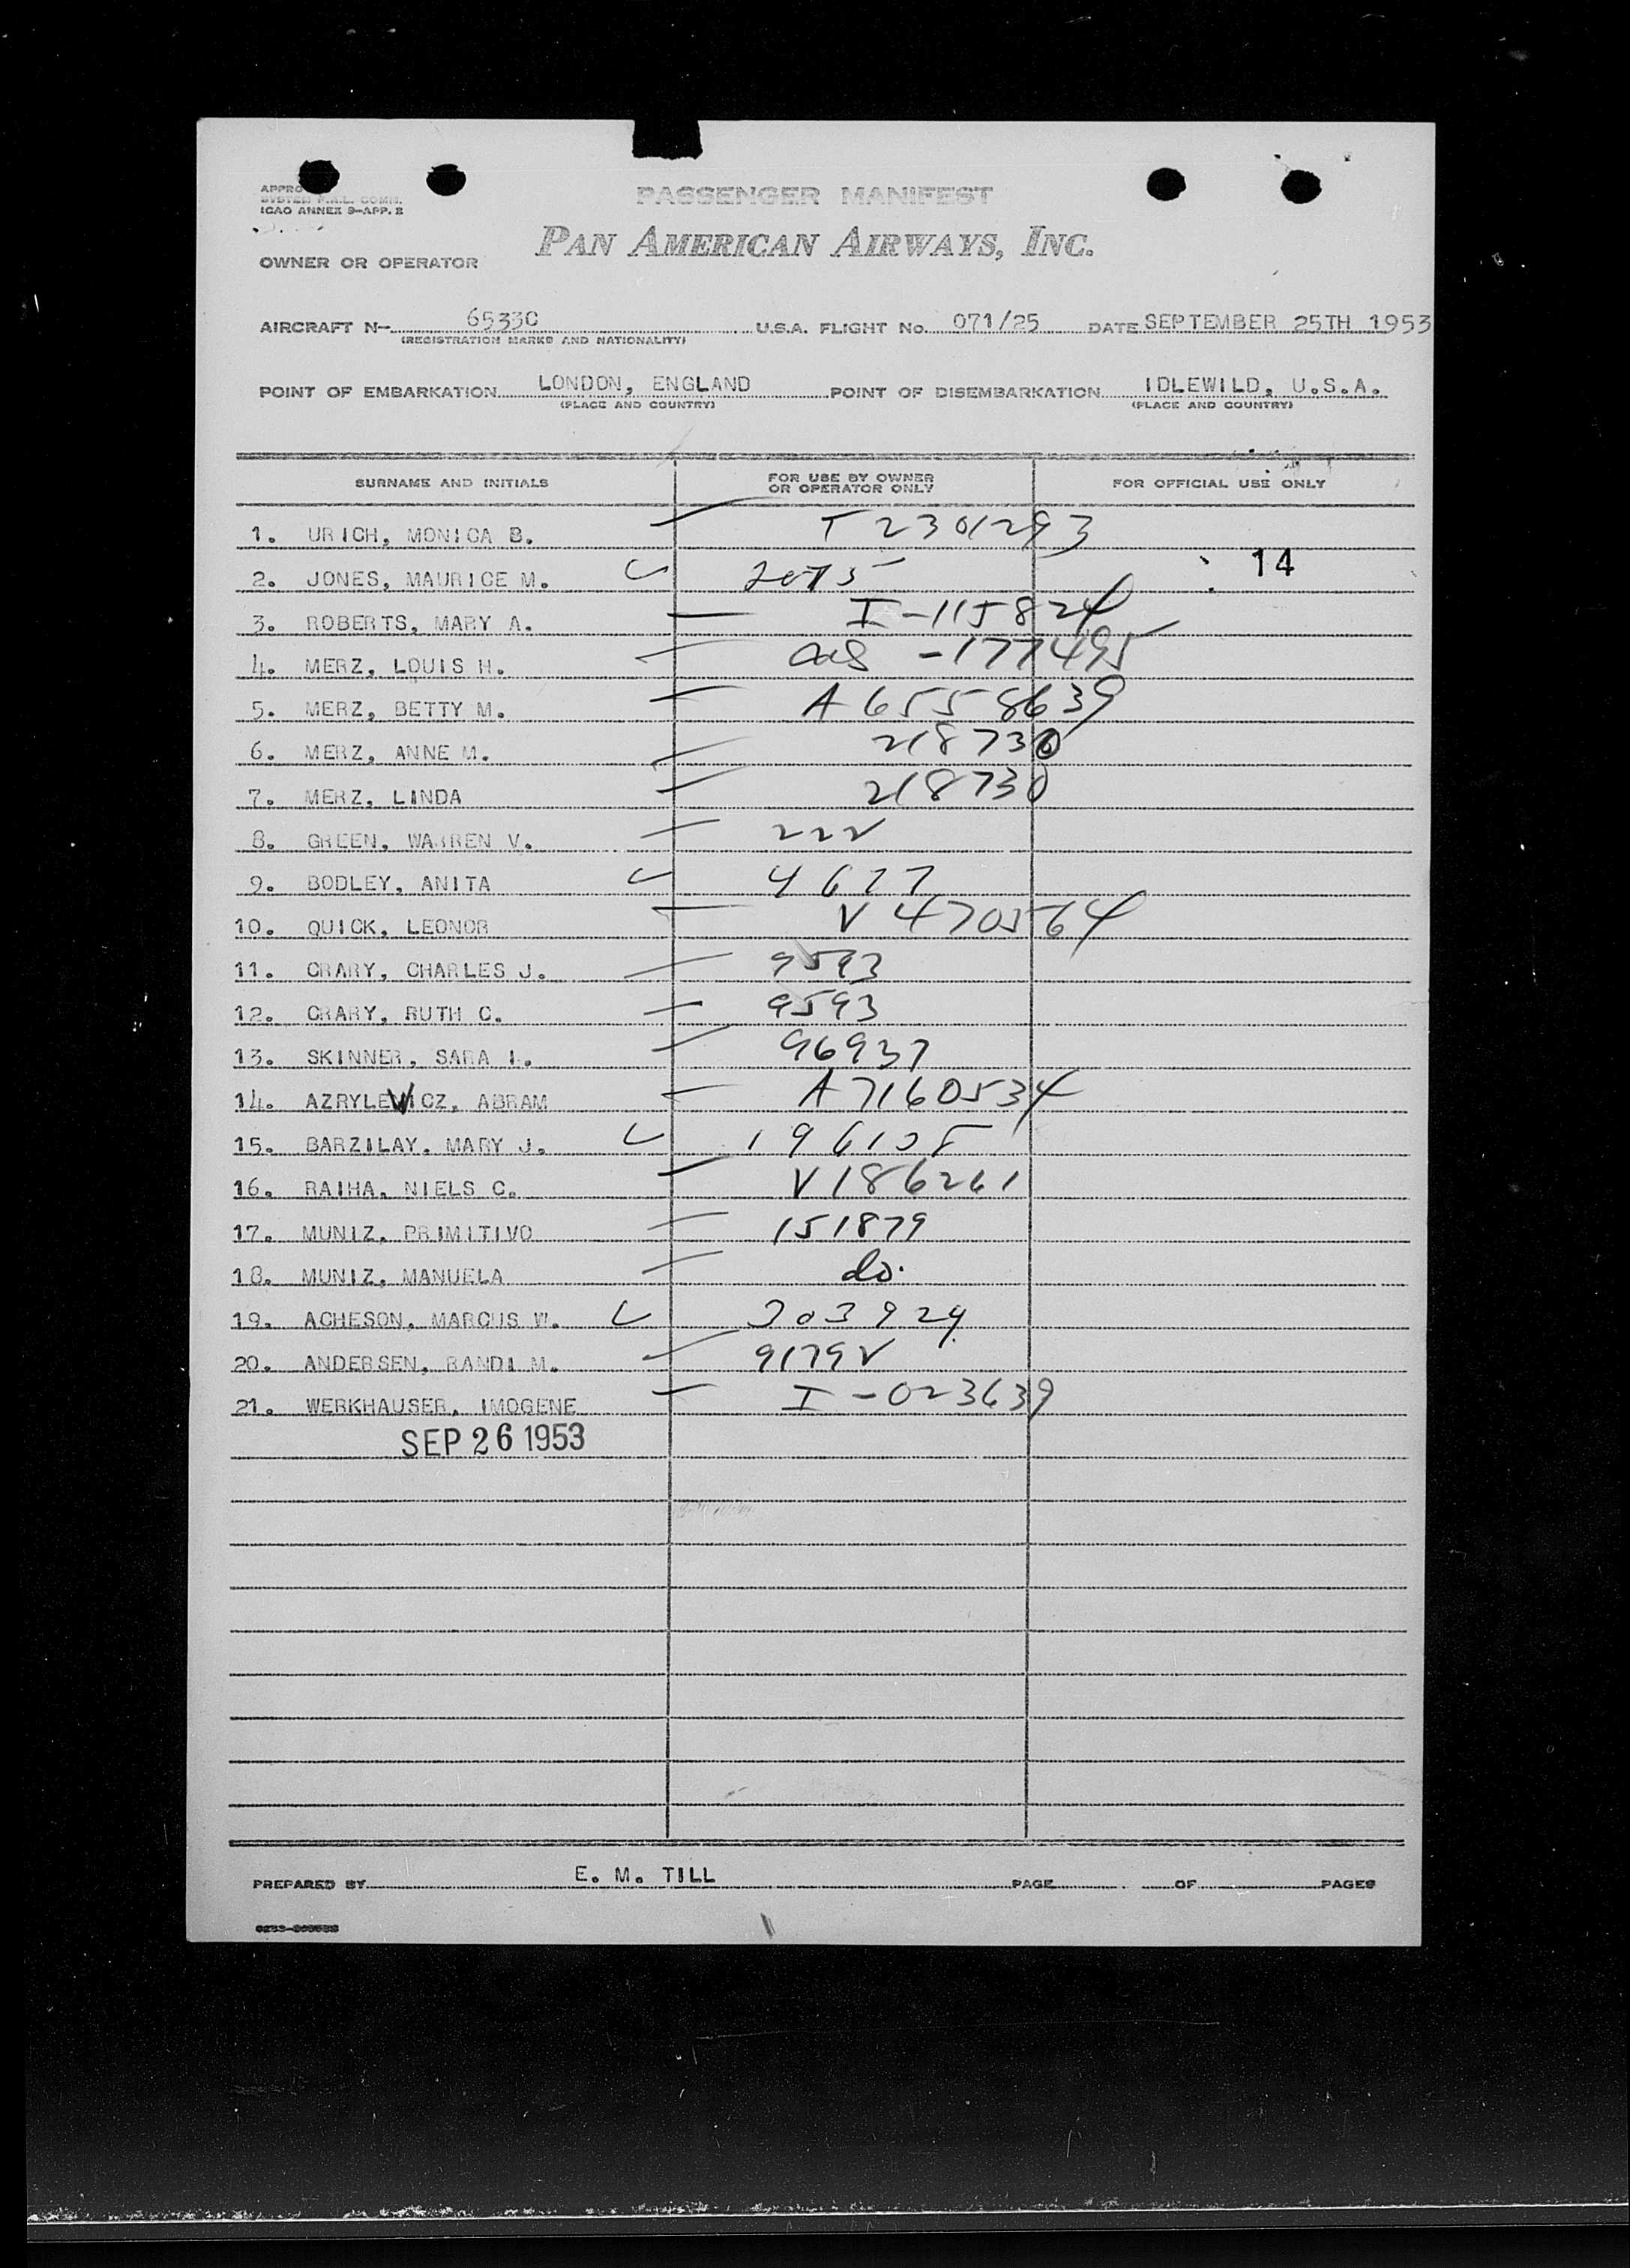 PASSENGER MANIFEST
ICAO ANNEX 9-APP. 2
PAN AMERICAN AIRWAYS, INC.
OWNER OR OPERATOR
AIRCRAFT N- 6533C U.S.A. FLIGHT No. 071/25 DATE SEPTEMBER 25TH 1953
(REGISTRATION MARKS AND NATIONALITY)
POINT OF EMBARKATION LONDON, ENGLAND POINT OF DISEMBARKATION IDLEWILD, U.S.A.
(PLACE AND COUNTRY) (PLACE AND COUNTRY)
SURNAME AND INITIALS FOR USE BY OWNER OR OPERATOR ONLY FOR OFFICIAL USE ONLY
1. URICH, MONICA B. T 2301293
14
2. JONES, MAURICE M. 2075
3. ROBERTS, MARY A. I-115824
4. MERZ, LOUIS H. -177495
5. MERZ, BETTY M. A6558639
6. MERZ, ANNE M. 218730
7. MERZ, LINDA 218730
8. GREEN, WARREN V. 222
9. BODLEY, ANITA 4677
10. QUICK, LEONOR V 4705764
11. CRARY, CHARLES J. 9593
12. CRARY, RUTH C. 9593
13. SKINNER, SARA I. 96937
14. AZRYLEWICZ, ABRAM A7160534
15. BARZILAY, MARY J. 196108
16. RAIHA, NIELS C. V186261
17. MUNIZ, PRIMITIVO 151879
18. MUNIZ, MANUELA do.
19. ACHESON, MARCUS W. 303924
20. ANDERSEN, RANDI M. 91792
21. WERKHAUSER, IMOGENE I-023639
SEP 26 1953
PREPARED BY E. M. TILL PAGE OF PAGES